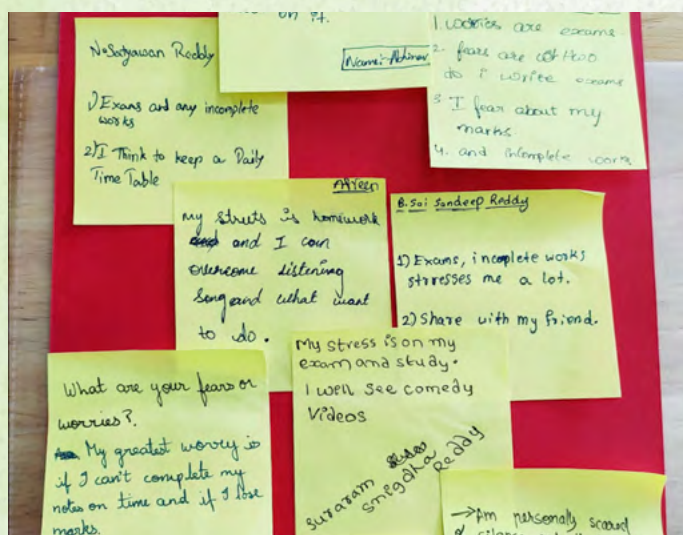 N. Satyawan Reddy
1) Exams and any incomplete
works
2) I Think to keep a Daily
Time Table
on it.
Name:- Abhinav
1. worries are exams
2. fears are
do i write exams
3. I fear about my
marks
4. and incomplete work
Afreen
My stress is homework
and I can
overcome listening
song and what want
to do.
B. Sai Sandeep Reddy
1) Exams, incoplete works
strresses me a lot.
2) Share with my friend.
What are your fears or
worries?
My greatest worry is
if I can't complete my
notes on time and if I lose
marks.
My stress is on my
exam and study.
I well see comedy
Videos
Suraram
Snigdha Reddy
→ Am personally scared